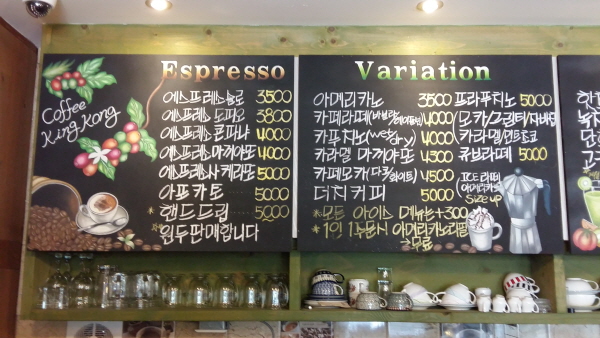 Coffee
King Kong
Espresso
에스프레스솔로 3500
에스프레스도피오 3800
에스프레스콘파나 4000
에스프레스마끼아또 4000
에스프레스사케라또 5000
아포카토 5000
*핸드드립 5000
*원두판매합니다
Variation
아메리카노 3500
카페라떼(바닐라/헤이즐넛) 4000
카푸치노(wet/dry) 4000
카라멜 마끼아또 4500
카페모카(다크/화이트) 4500
더치커피 5000
*모든 아이스 메뉴는+300
*1인 1주문시 아메리카노리필
→무료
프라푸치노 5000
(모카/그린티/자바칩
카라멜/민트초코
큐브라떼 5000
(ICE 라떼
아메리카노)
Size up